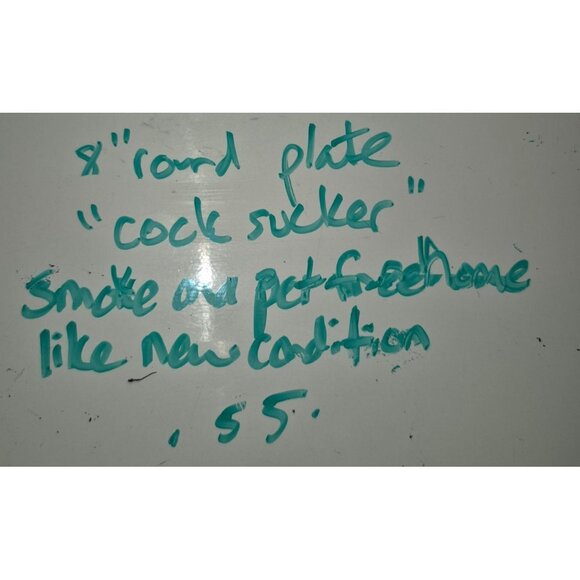 8" round plate
"cock sucker"
Smoke and pet free home
like new condition
.55.